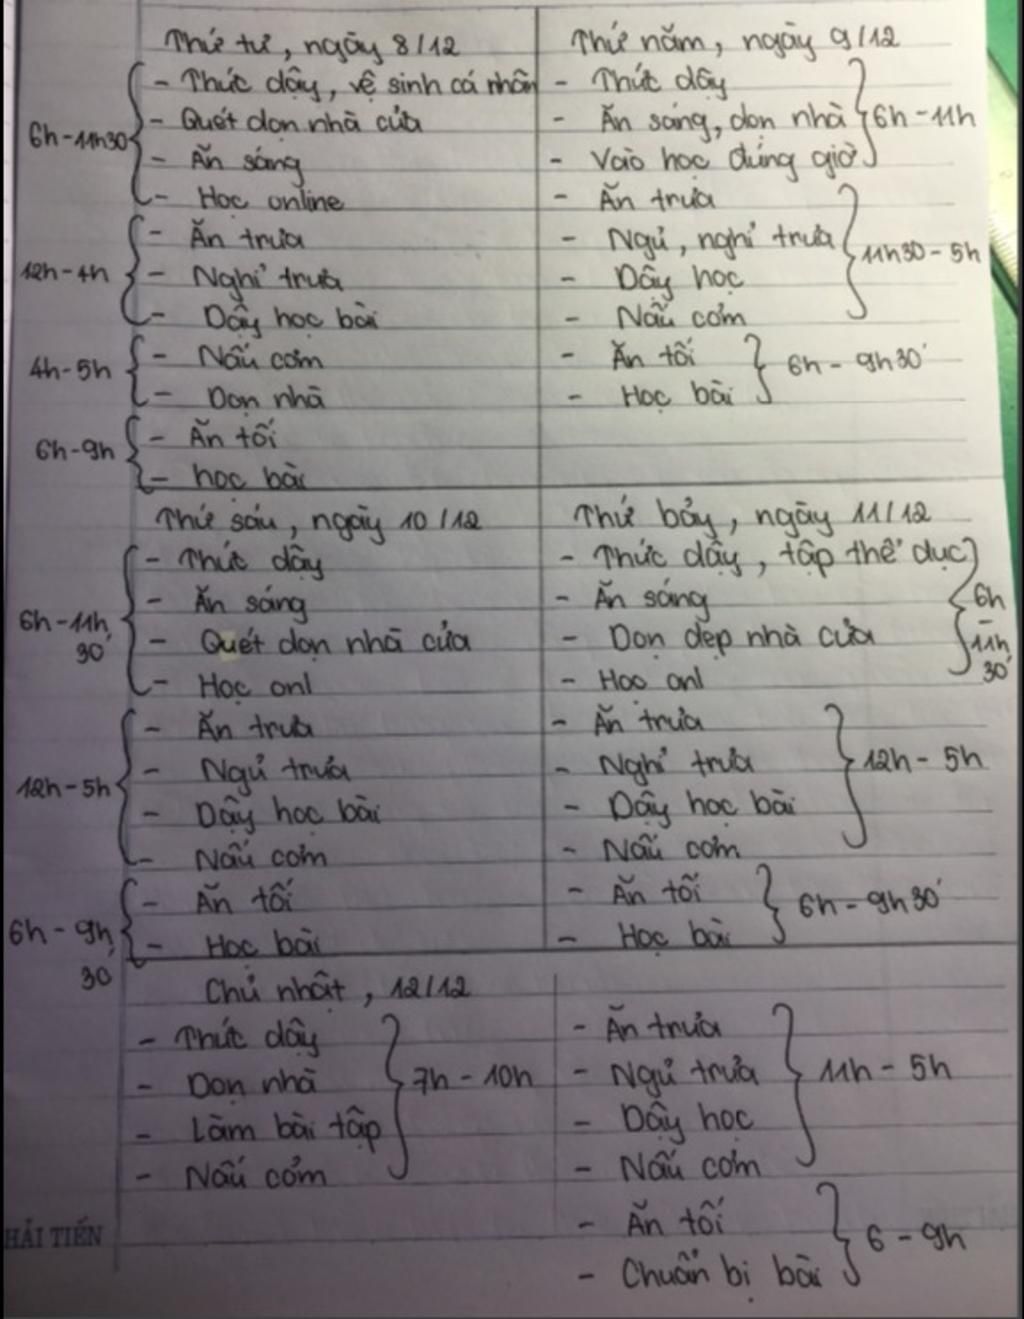 Thứ tư, ngày 8/12
6h-11h30
- Thức dậy, vệ sinh cá nhân
- Quét dọn nhà cửa
- Ăn sáng
- Học online
12h-4h
- Ăn trưa
- Nghỉ trưa
- Dậy học bài
4h-5h
- Nấu cơm
- Dọn nhà
6h-9h
- Ăn tối
- học bài
Thứ năm, ngày 9/12
- Thức dậy
- Ăn sáng, dọn nhà
- Vào học đúng giờ
6h-11h
- Ăn trưa
- Ngủ, nghỉ trưa
- Dậy học
- Nấu cơm
11h30-5h
- Ăn tối
- Học bài
6h-9h30'
Thứ sáu, ngày 10/12
6h-11h
30'
- Thức dậy
- Ăn sáng
- Quét dọn nhà cửa
- Học onl
12h-5h
- Ăn trưa
- Ngủ trưa
- Dậy học bài
- Nấu cơm
6h-9h
30
- Ăn tối
- Học bài
Thứ bảy, ngày 11/12
- Thức dậy, tập thể dục
- Ăn sáng
- Dọn dẹp nhà cửa
- Học onl
6h
-
11h
30'
- Ăn trưa
- Nghỉ trưa
- Dậy học bài
- Nấu cơm
12h-5h
- Ăn tối
- Học bài
6h-9h30'
Chủ nhật, 12/12
- Thức dậy
- Dọn nhà
- Làm bài tập
- Nấu cơm
7h-10h
- Ăn trưa
- Ngủ trưa
- Dậy học
- Nấu cơm
11h-5h
- Ăn tối
- Chuẩn bị bài
6-9h
HẢI TIẾN